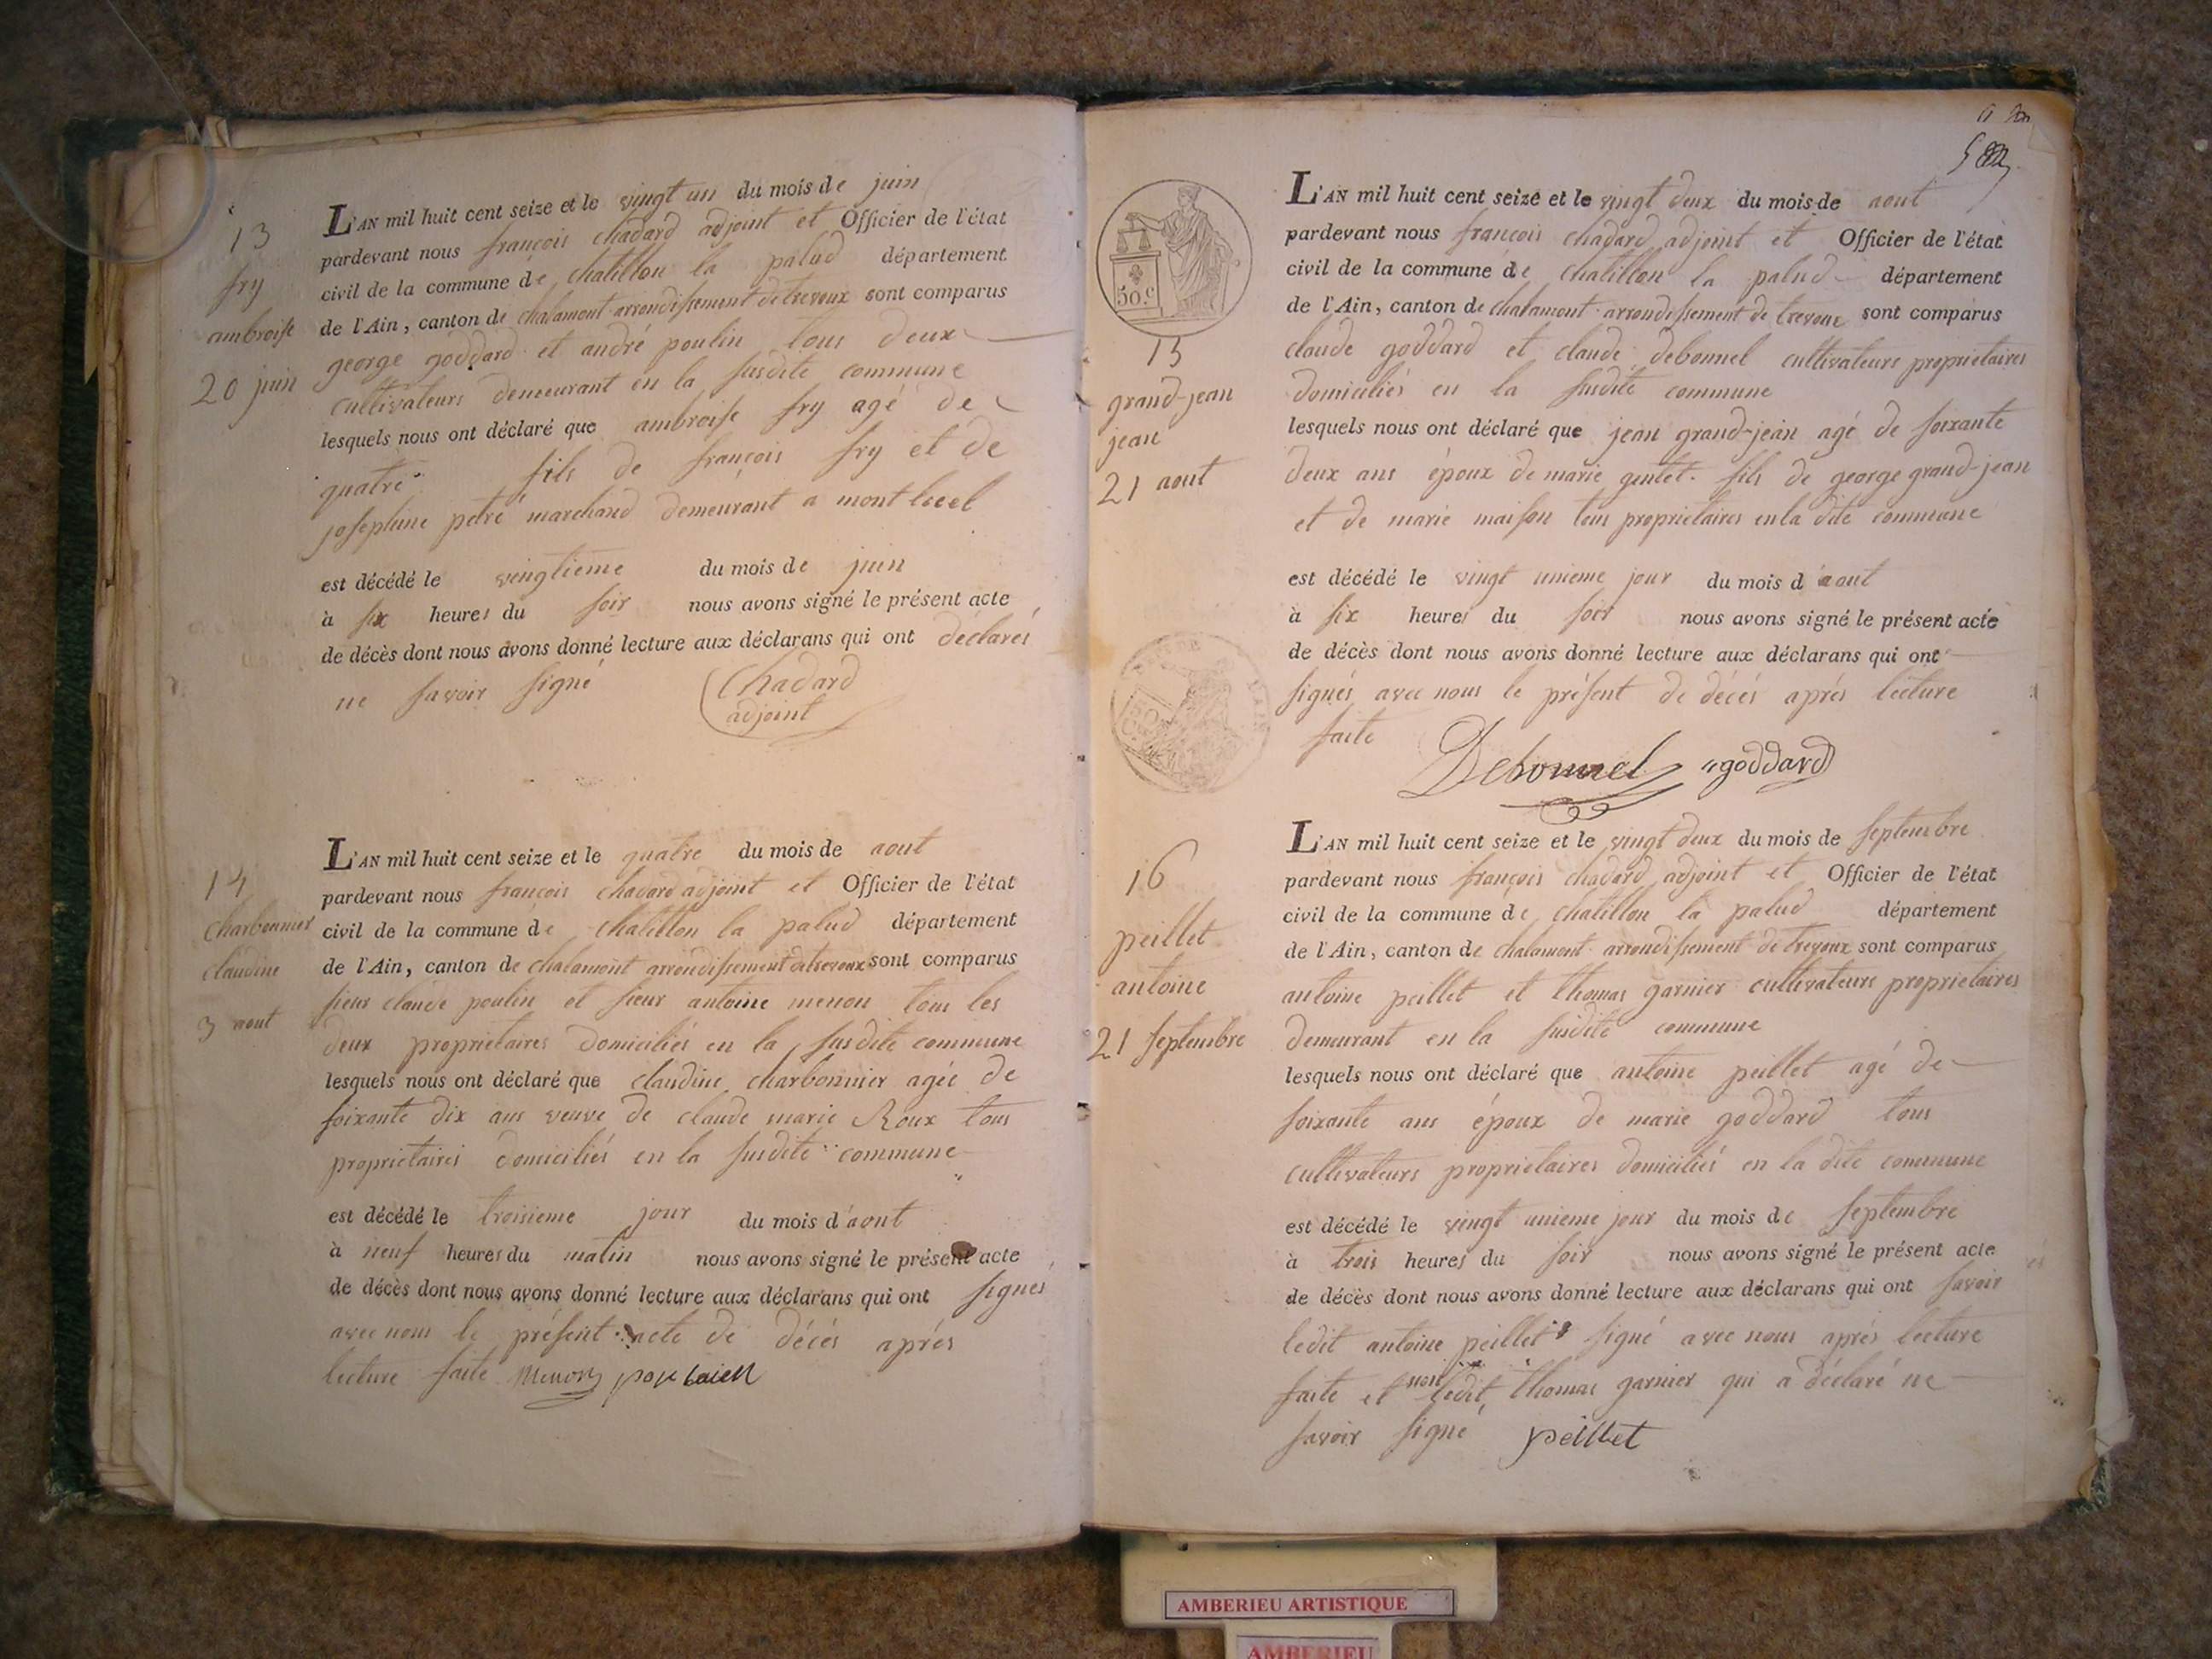 13
fry
ambroise
20 juin
L'AN mil huit cent seize et le vingt un du mois de juin
pardevant nous françois chadard adjoint et Officier de l'état
civil de la commune de chatillon la palud département
de l'Ain, canton de chalamont arrondissement de trevoux sont comparus
george goddard et andré poulin tous deux
cultivateurs demeurant en la susdite commune
lesquels nous ont déclaré que ambroise fry agé de
quatre fils de françois fry et de
josephine petre marchand demeurant a mont lucel
est décédé le vingtieme du mois de juin
à six heures du soir nous avons signé le présent acte
de décès dont nous avons donné lecture aux déclarans qui ont déclarés
ne savoir signé
Chadard
adjoint
14
charbonnier
claudine
3 aout
L'AN mil huit cent seize et le quatre du mois de aout
pardevant nous françois chadard adjoint et Officier de l'état
civil de la commune de chatillon la palud département
de l'Ain, canton de chalamont arrondissement de trevoux sont comparus
sieur claude poulin et sieur antoine menon tous les
deux proprietaires domiciliés en la susdite commune
lesquels nous ont déclaré que claudine charbonnier agée de
soixante dix ans veuve de claude marie Roux tous
proprietaires domiciliés en la susdite commune
est décédé le troisieme jour du mois d'aout
à neuf heures du matin nous avons signé le présent acte
de décès dont nous avons donné lecture aux déclarans qui ont signés
avec nous le présent acte de décés aprés
lecture faite Menon
50.c
15
grand-jean
jean
21 aout
L'AN mil huit cent seize et le vingt deux du mois de aout
pardevant nous françois chadard adjoint et Officier de l'état
civil de la commune de chatillon la palud département
de l'Ain, canton de chalamont arrondissement de trevoux sont comparus
claude goddard et claude debonnel cultivateurs proprietaires
domiciliés en la susdite commune
lesquels nous ont déclaré que jean grand-jean agé de soixante
deux ans époux de marie gentet. fils de george grand-jean
et de marie maison tous proprietaires en la dite commune
est décédé le vingt unieme jour du mois d'aout
à six heures du soir nous avons signé le présent acte
de décès dont nous avons donné lecture aux déclarans qui ont
signés avec nous le présent de décés aprés lecture
faite
Debonnel goddard
16
peillet
antoine
21 septembre
L'AN mil huit cent seize et le vingt deux du mois de septembre
pardevant nous françois chadard adjoint et Officier de l'état
civil de la commune de chatillon la palud département
de l'Ain, canton de chalamont arrondissement de trevoux sont comparus
antoine peillet et thomas garnier cultivateurs proprietaires
demeurant en la susdite commune
lesquels nous ont déclaré que antoine peillet agé de
soixante ans époux de marie goddard tous
cultivateurs proprietaires domiciliés en la dite commune
est décédé le vingt unieme jour du mois de septembre
à trois heures du soir nous avons signé le présent acte
de décès dont nous avons donné lecture aux déclarans qui ont savoir
ledit antoine peillet signé avec nous aprés lecture
faite et non ledit thomas garnier qui a déclaré ne
savoir signé peillet
AMBERIEU ARTISTIQUE
AMBERIEU